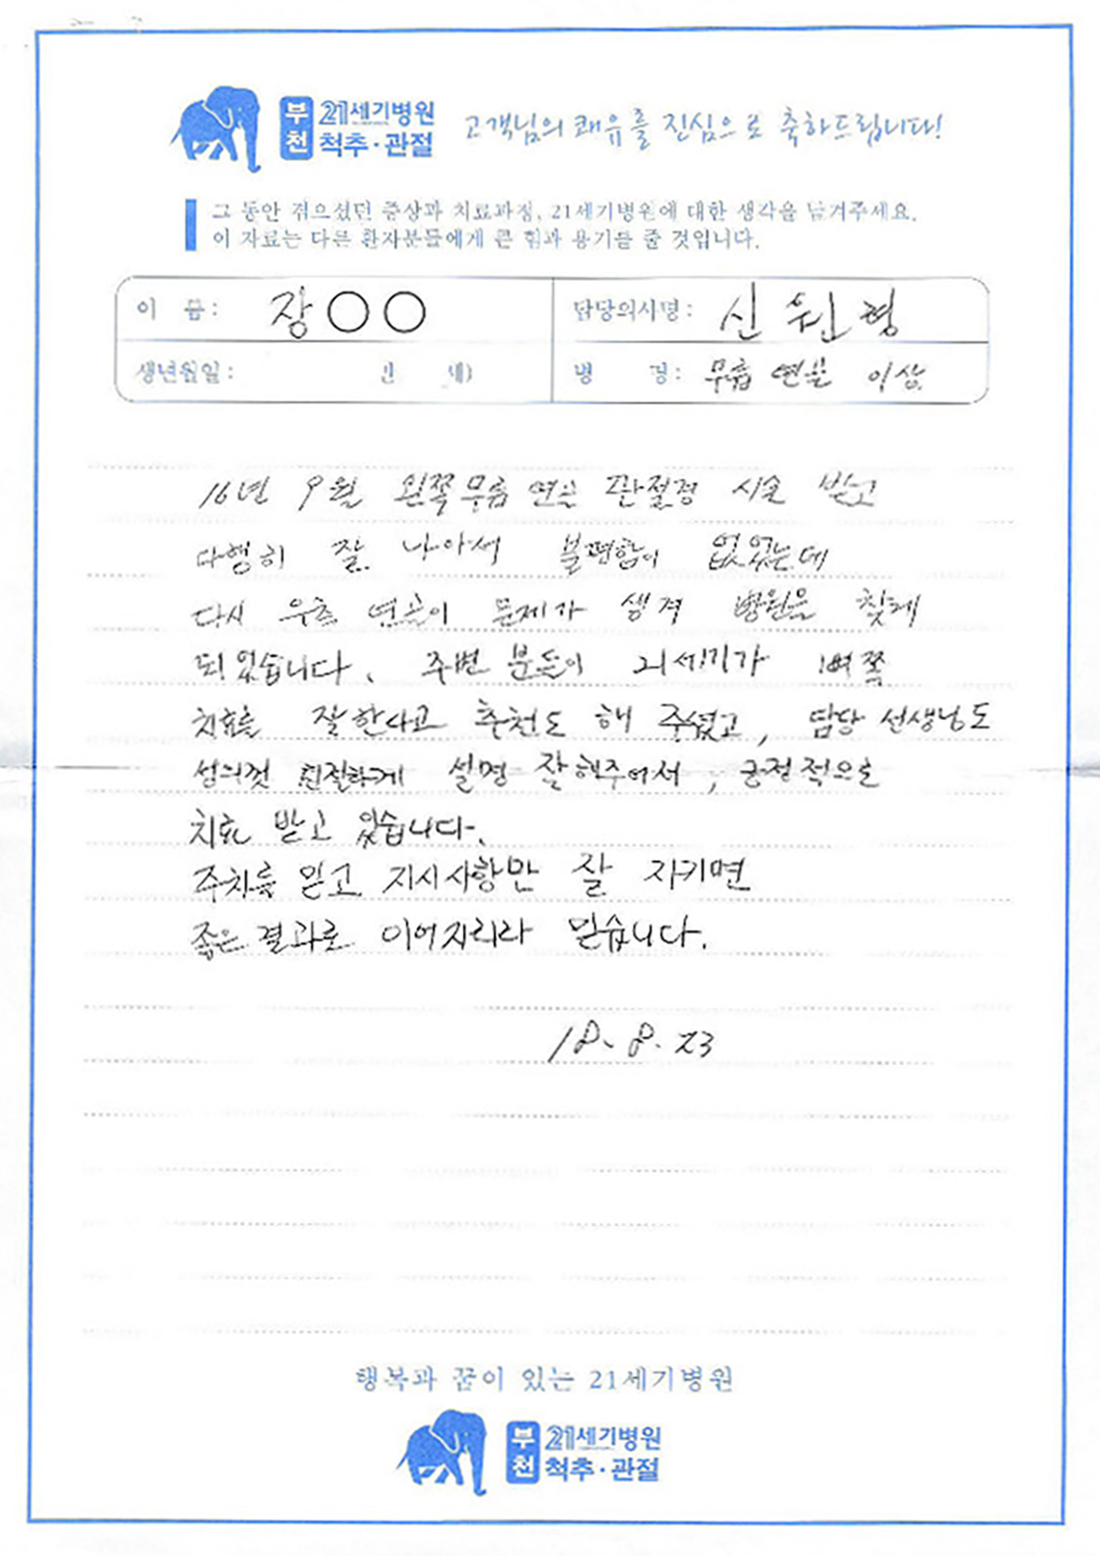 부천 21세기병원 척추·관절 고객님의 쾌유를 진심으로 축하드립니다!
그 동안 겪으셨던 증상과 치료과정, 21세기병원에 대한 생각을 남겨주세요.
이 자료는 다른 환자분들에게 큰 힘과 용기를 줄 것입니다.
이 름: 장○○ 담당의사명: 신원형
생년월일: 만 세) 병 명: 무릎 연골 이상
16년 9월 왼쪽무릎 연골 관절경 시술 받고
다행히 잘 나아서 불편함이 없었는데
다시 우측 연골이 문제가 생겨 병원을 찾게
되었습니다. 주변 분들이 21세기가 뼈쪽
치료를 잘한다고 추천도 해 주셨고, 담당 선생님도
성의껏 친절하게 설명 잘해주어서, 긍정적으로
치료 받고 있습니다.
주치를 믿고 지시사항만 잘 지키면
좋은 결과로 이어지리라 믿습니다.
18. 8. 23
행복과 꿈이 있는 21세기병원
부천 21세기병원 척추·관절